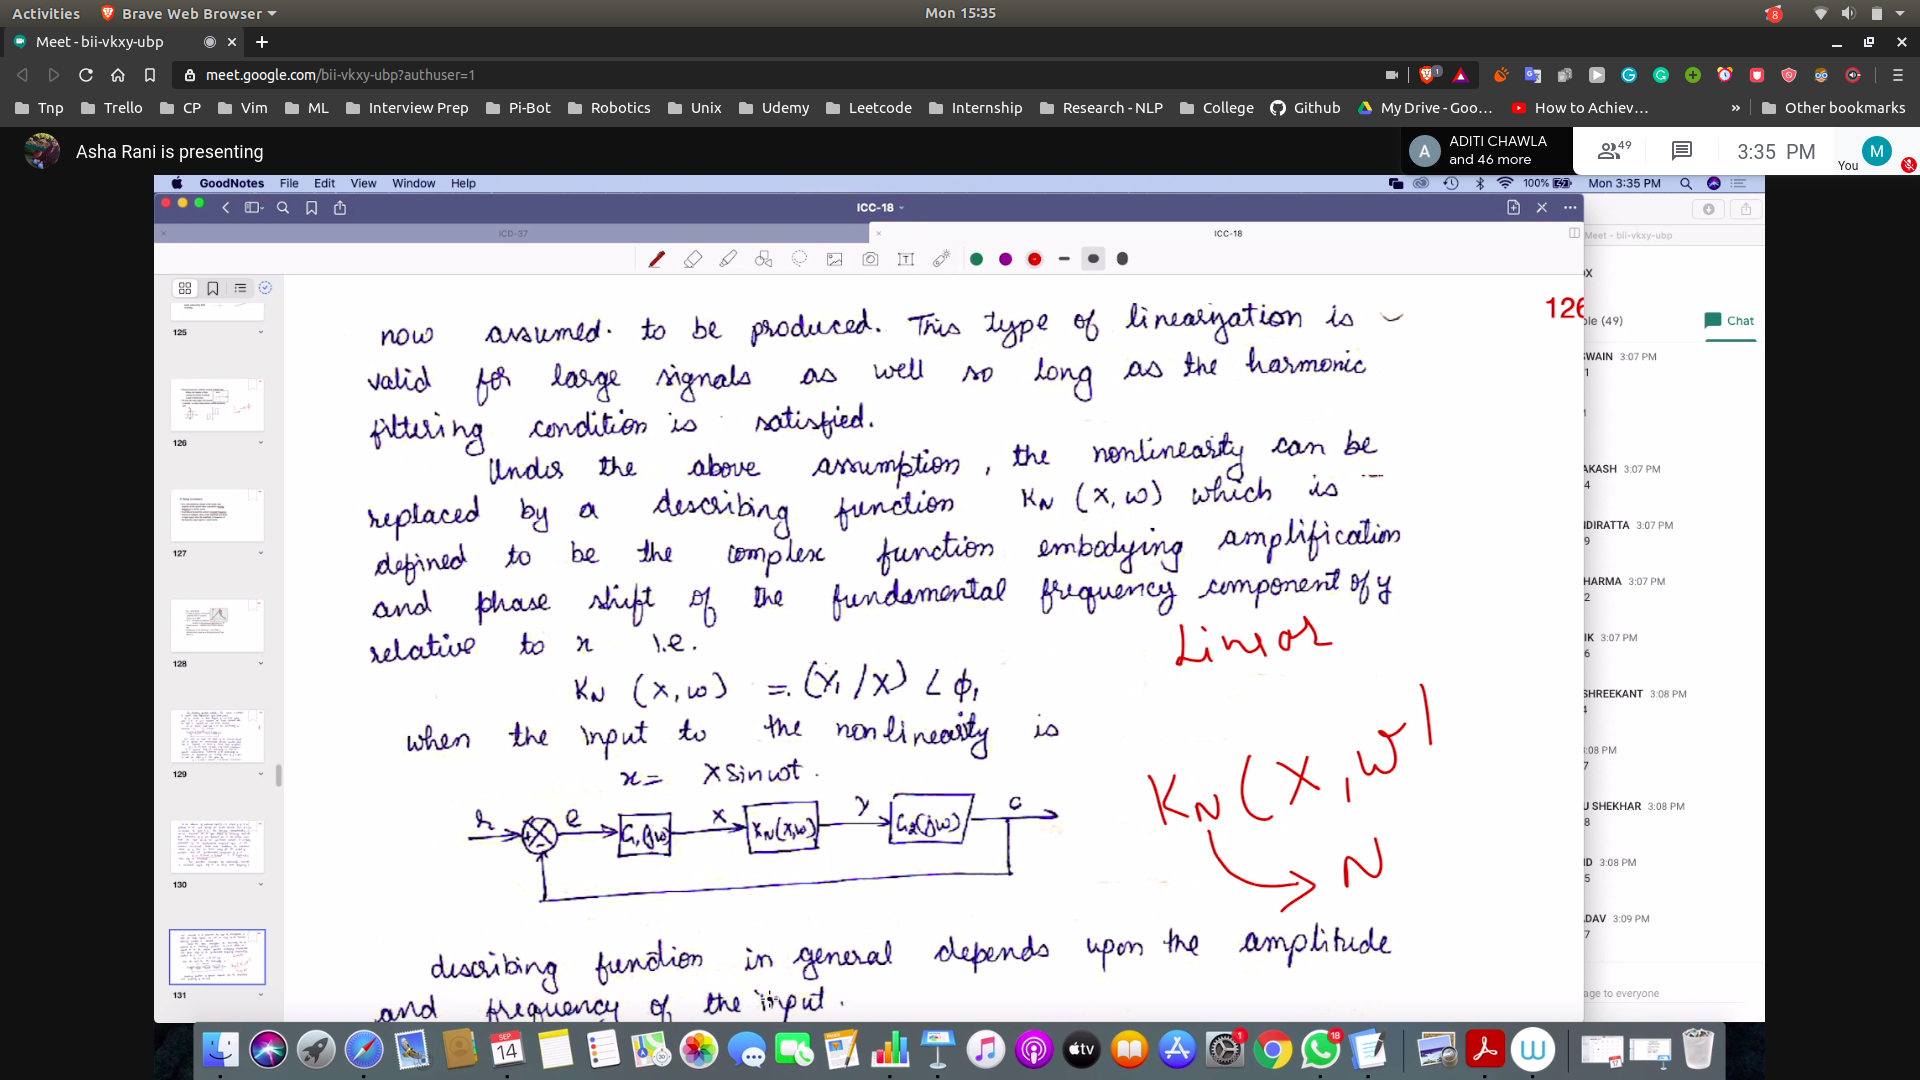 Activities Brave Web Browser Mon 15:35 8
Meet - bii-vkxy-ubp
meet.google.com/bii-vkxy-ubp?authuser=1
Tnp Trello CP Vim ML Interview Prep Pi-Bot Robotics Unix Udemy Leetcode Internship Research - NLP College Github My Drive - Goo... How to Achiev... » Other bookmarks
Asha Rani is presenting
ADITI CHAWLA
and 46 more
49
3:35 PM
You M
GoodNotes File Edit View Window Help 100% Mon 3:35 PM
ICC-18
ICD-37 ICC-18
Meet - bii-vkxy-ubp
125
126
127
128
129
130
131
126
now assumed. to be produced. This type of linearization is
valid for large signals as well so long as the harmonic
filtering condition is satisfied.
Under the above assumption, the nonlinearity can be
replaced by a describing function KN (X, ω) which is
defined to be the complex function embodying amplification
and phase shift of the fundamental frequency component of y
relative to x i.e.
Linear
KN (X, ω) = (Y1/X) ∠ ϕ1
when the input to the nonlinearity is
x = X sin ωt.
KN (X, ω)
N
r + - e G1(jω) X KN(X,ω) Y G2(jω) C
describing function in general depends upon the amplitude
and frequency of the input.
ple (49) Chat
SWAIN 3:07 PM
1
AKASH 3:07 PM
4
NDIRATTA 3:07 PM
9
HARMA 3:07 PM
2
IK 3:07 PM
6
SHREEKANT 3:08 PM
4
3:08 PM
U SHEKHAR 3:08 PM
8
ID 3:08 PM
5
DAV 3:09 PM
7
age to everyone
SEP
14
tv
1
18
W
17